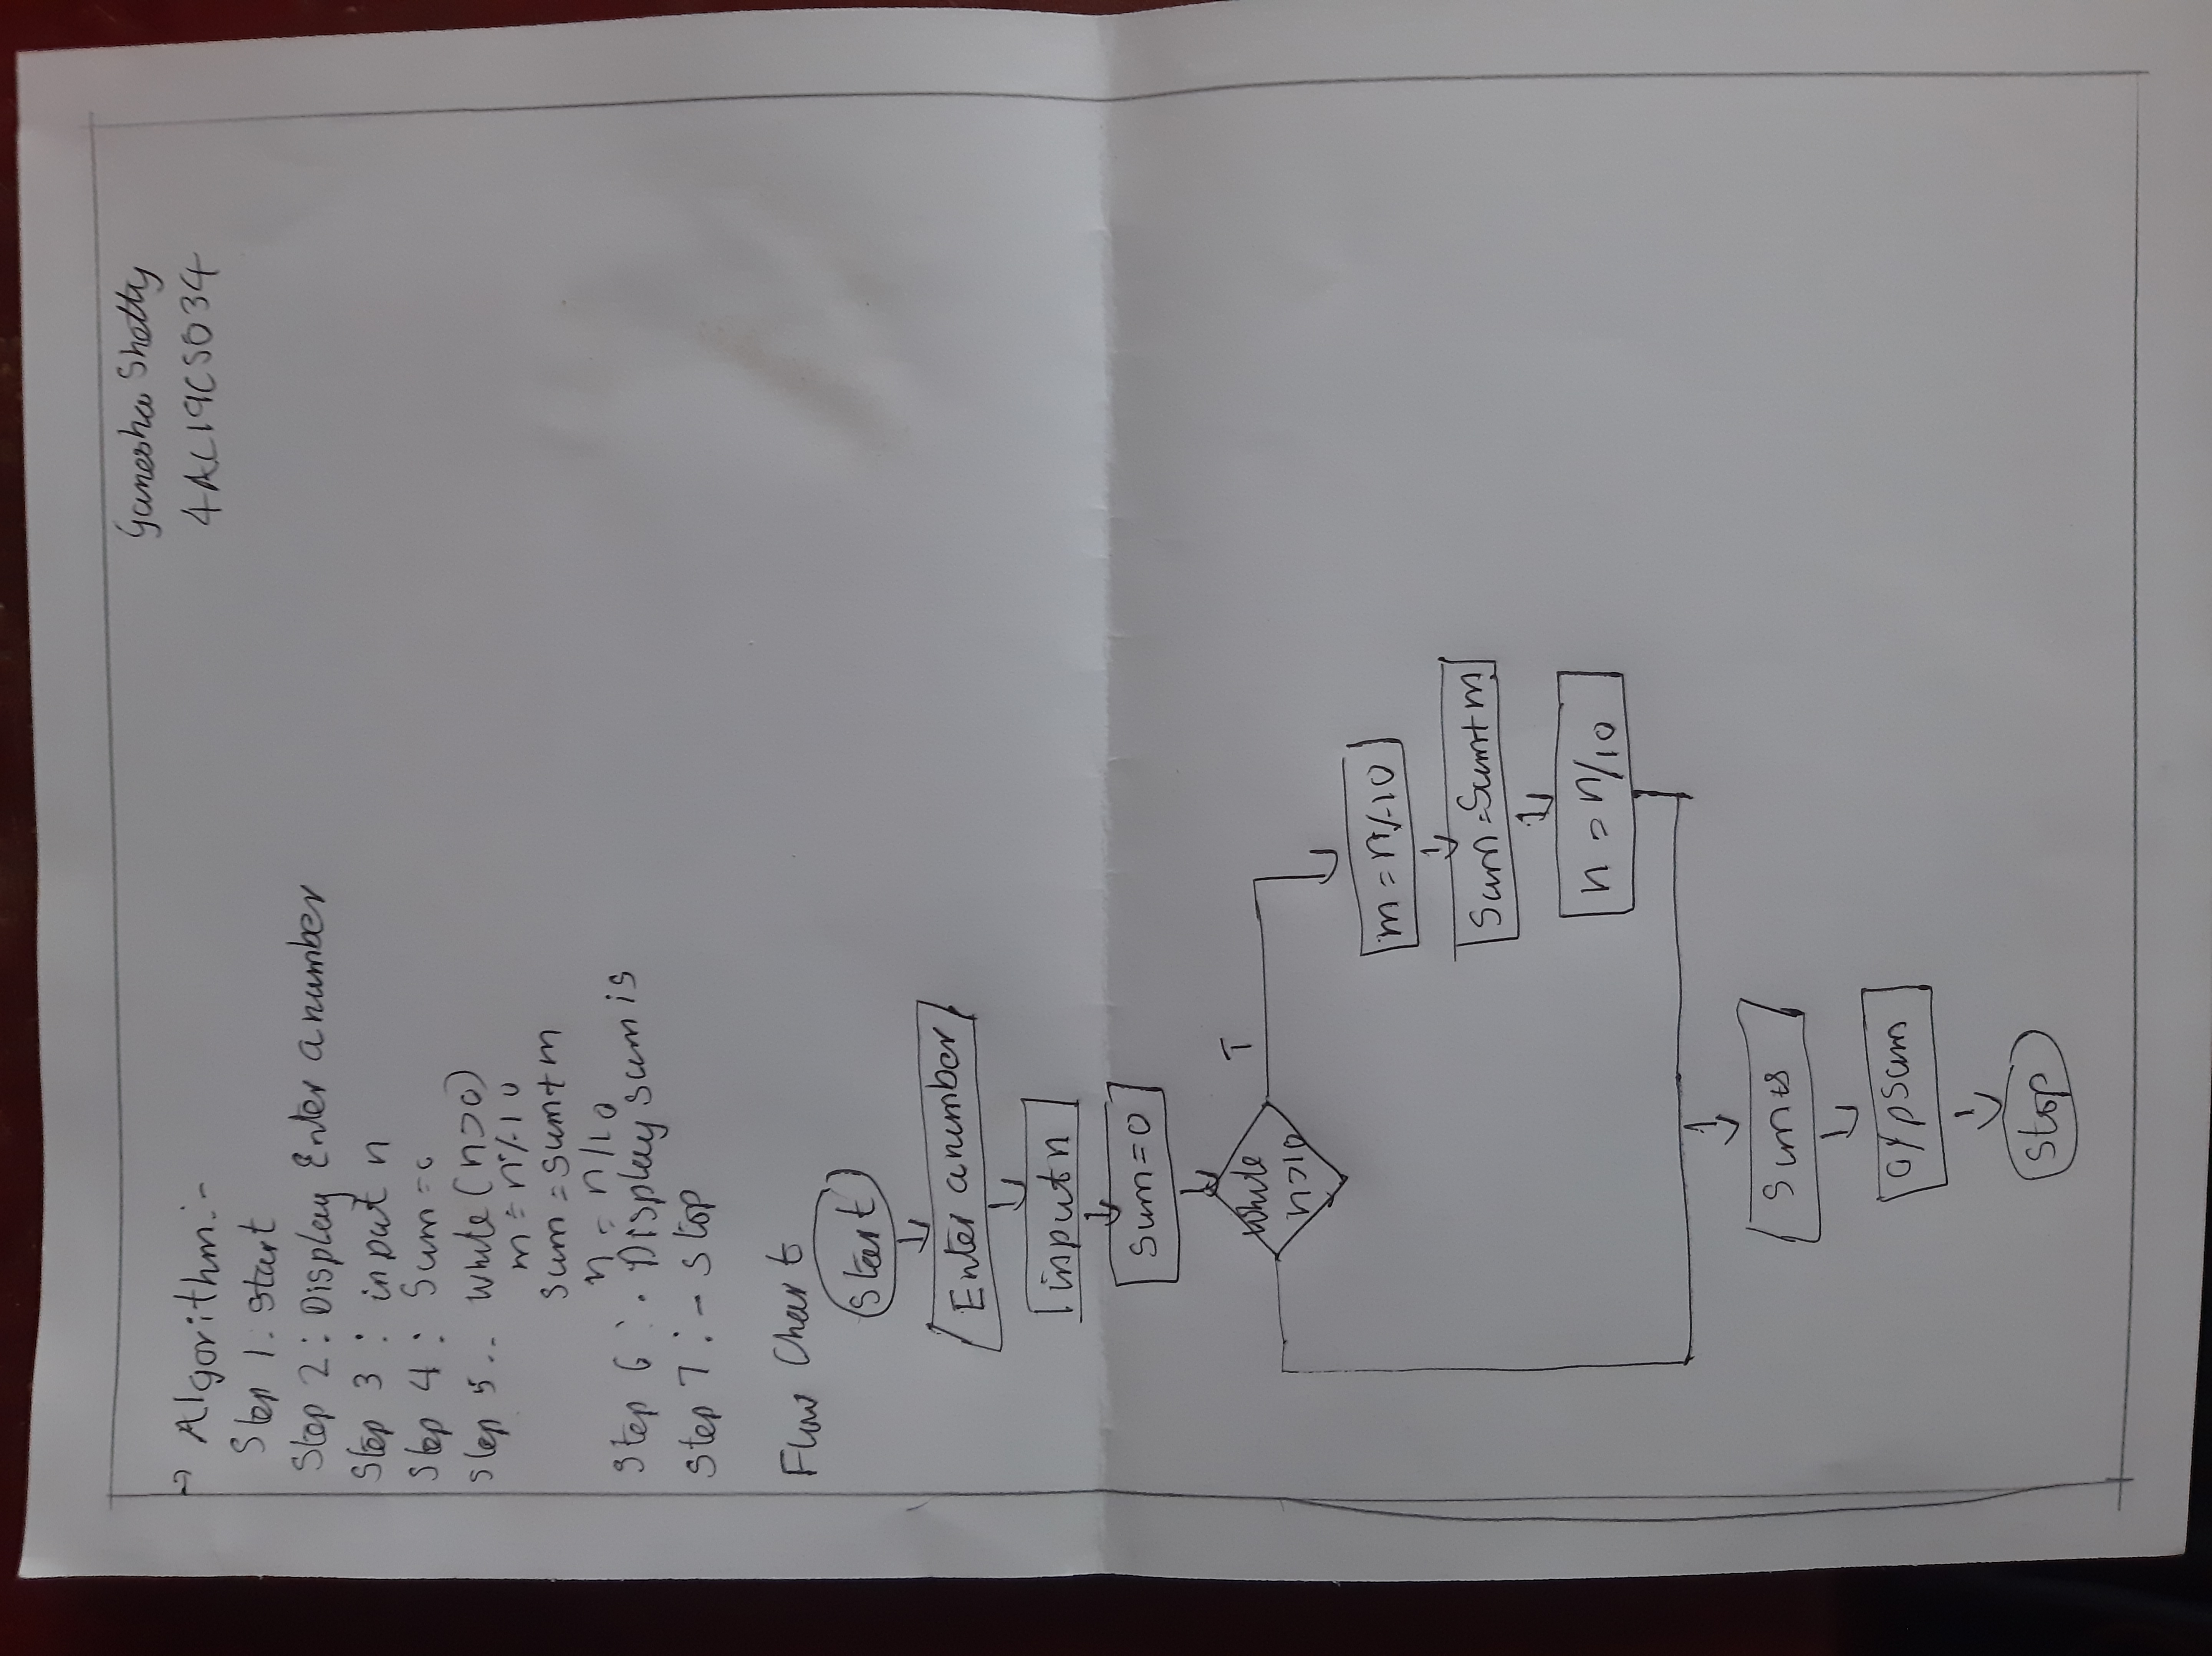 Ganesha Shetty
4AL19CS034
→ Algorithm:-
Step 1. Start
Step 2: Display Enter a number
Step 3 : input n
Step 4 : Sum=0
Step 5.. while (n>0)
m = n%10
sum = sum+m
n = n/10
Step 6 : . Display sum is
Step 7 :- Stop
Flow Chart
Start
Enter a number
input n
Sum=0
while
n>10
T
m = n%10
Sum = Sum+m
n = n/10
Sum is
o/p Sum
Stop